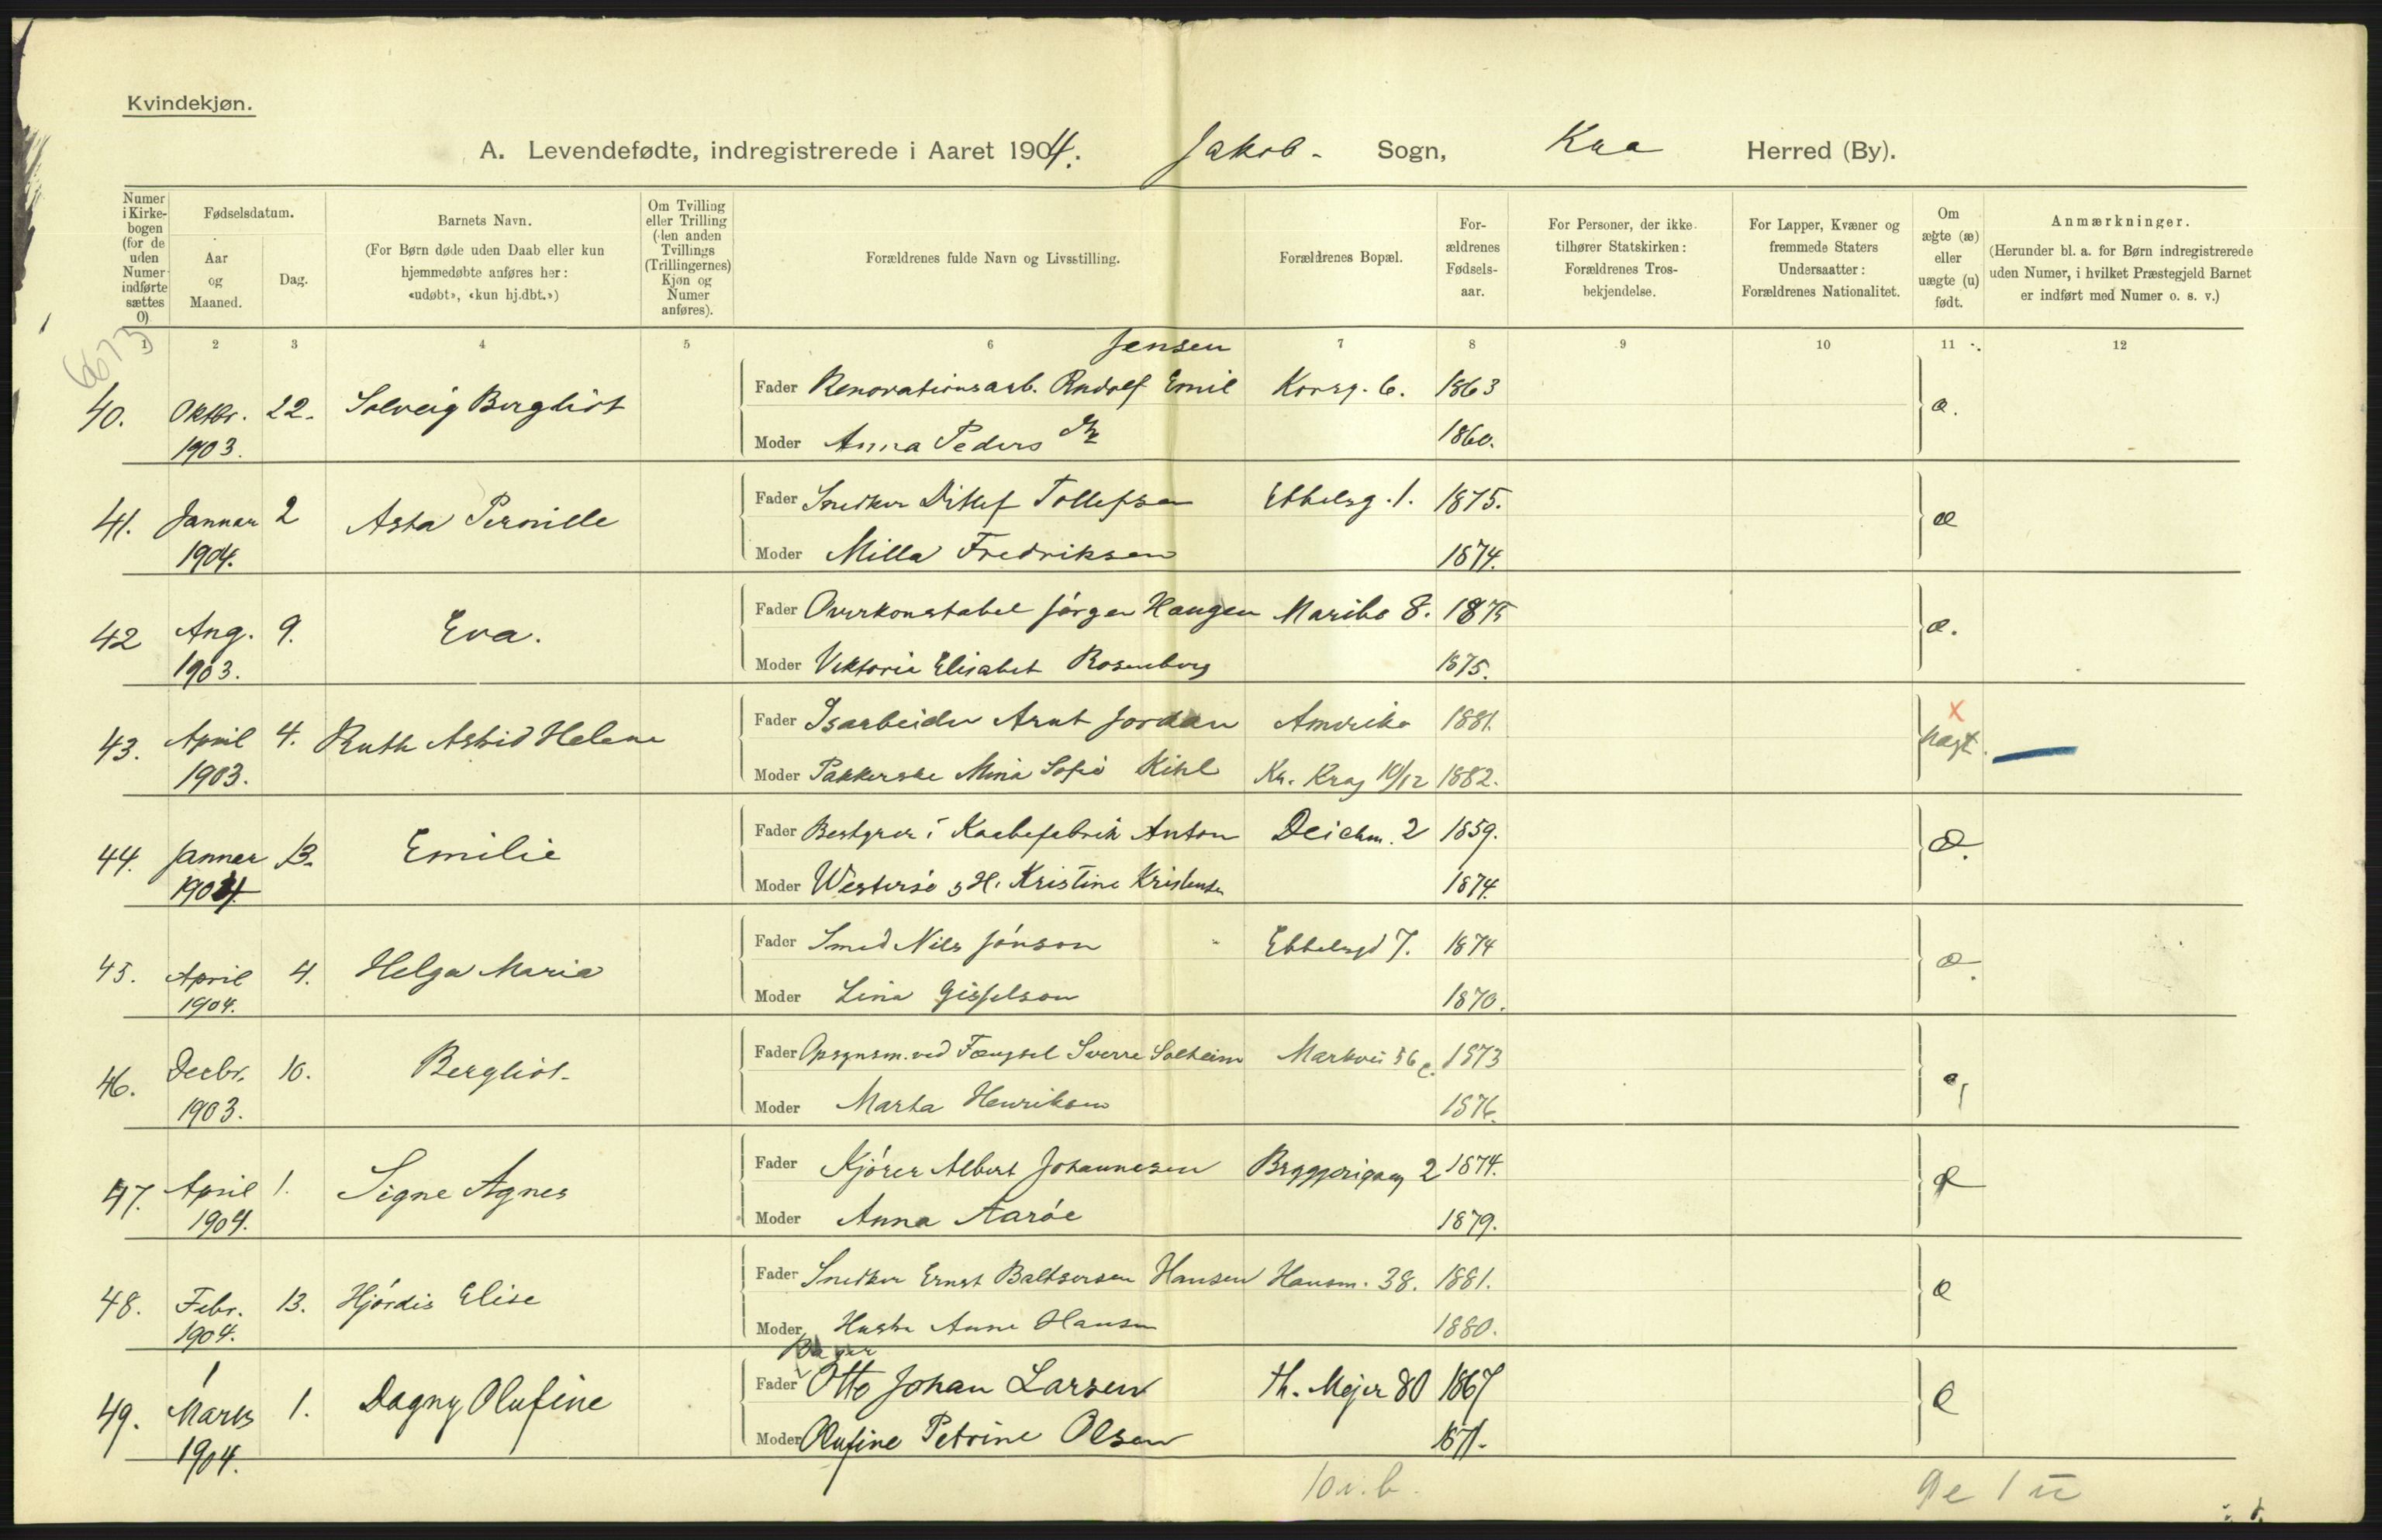 Kvindekjøn.
A. Levendefødte, indregistrerede i Aaret 1904. Jakob- Sogn, Kra Herred (By).
Numer i Kirkebogen (for de uden Numer indførte sættes 0)
Fødselsdatum.
Aar og Maaned.
Dag.
Barnets Navn.
(For Børn døde uden Daab eller kun hjemmedøbte anføres her: «udøbt», «kun hj.dbt.»)
Om Tvilling eller Trilling (den anden Tvillings (Trillingernes) Kjøn og Numer anføres).
Forældrenes fulde Navn og Livsstilling.
Forældrenes Bopæl.
Forældrenes Fødselsaar.
For Personer, der ikke tilhører Statskirken: Forældrenes Trosbekjendelse.
For Lapper, Kvæner og fremmede Staters Undersaatter: Forældrenes Nationalitet.
Om ægte (æ) eller uægte (u) født.
Anmærkninger.
(Herunder bl. a. for Børn indregistrerede uden Numer, i hvilket Præstegjeld Barnet er indført med Numer o. s. v.)
1 2 3 4 5 6 7 8 9 10 11 12
6673
Jensen
40. Oktbr. 1903. 22. Solveig Bergliot
Fader Renovationsarb. Rudolf Emil Korsg. 6. 1863 æ.
Moder Anna Peders 1860.
41. Januar 1904. 2 Asta Pernille
Fader Snedker Ditlef Tollefsen Ebbelsg. 1. 1875. æ
Moder Milla Fredriksen 1874.
42 Aug. 1903. 9. Eva.
Fader Overkonstabel Jørgen Haugen Maribo 8. 1875 æ.
Moder Viktoria Elisabet Rosenborg 1875.
43. April 1903. 4. Ruth Astrid Helene
Fader Isarbeider Arnt Jordan Amerika 1881. x uægt.
Moder Pakkerske Mina Sofie Kihl Kr. Krag 10/12 1882.
44. Januar 1904 13. Emilie
Fader Bestyrer i Kaabefabrik Anton Deichm. 2 1859. æ.
Moder Westersø & H. Kristine Kristensen 1874.
45. April 1904. 4. Helga Maria
Fader Smed Nils Jönson Ebbelsgd 7. 1874 æ.
Moder Lina Gisselson 1870.
46. Decbr. 1903. 10. Bergliot.
Fader Opsynsm. ved Fængsel Sverre Solheim Markvei 56 c. 1873 æ
Moder Marta Henriksen 1876.
47. April 1904. 1. Signe Agnes
Fader Kjører Albert Johannesen Bryggerigang 2 1874. æ
Moder Anna Aarøe 1879.
48. Febr. 1904. 13. Hjördis Elise
Fader Snedker Ernst Baltsersen Hansen Hausm. 38. 1881. æ
Moder Hustr. Anne Hansen 1880.
49. Marts 1904. 1. Dagny Olufine
Bager
Fader Otto Johan Larsen th. Mejer 80 1867 æ
Moder Olufine Petrine Olsen 1871.
10 i. b. 9 e 1 u